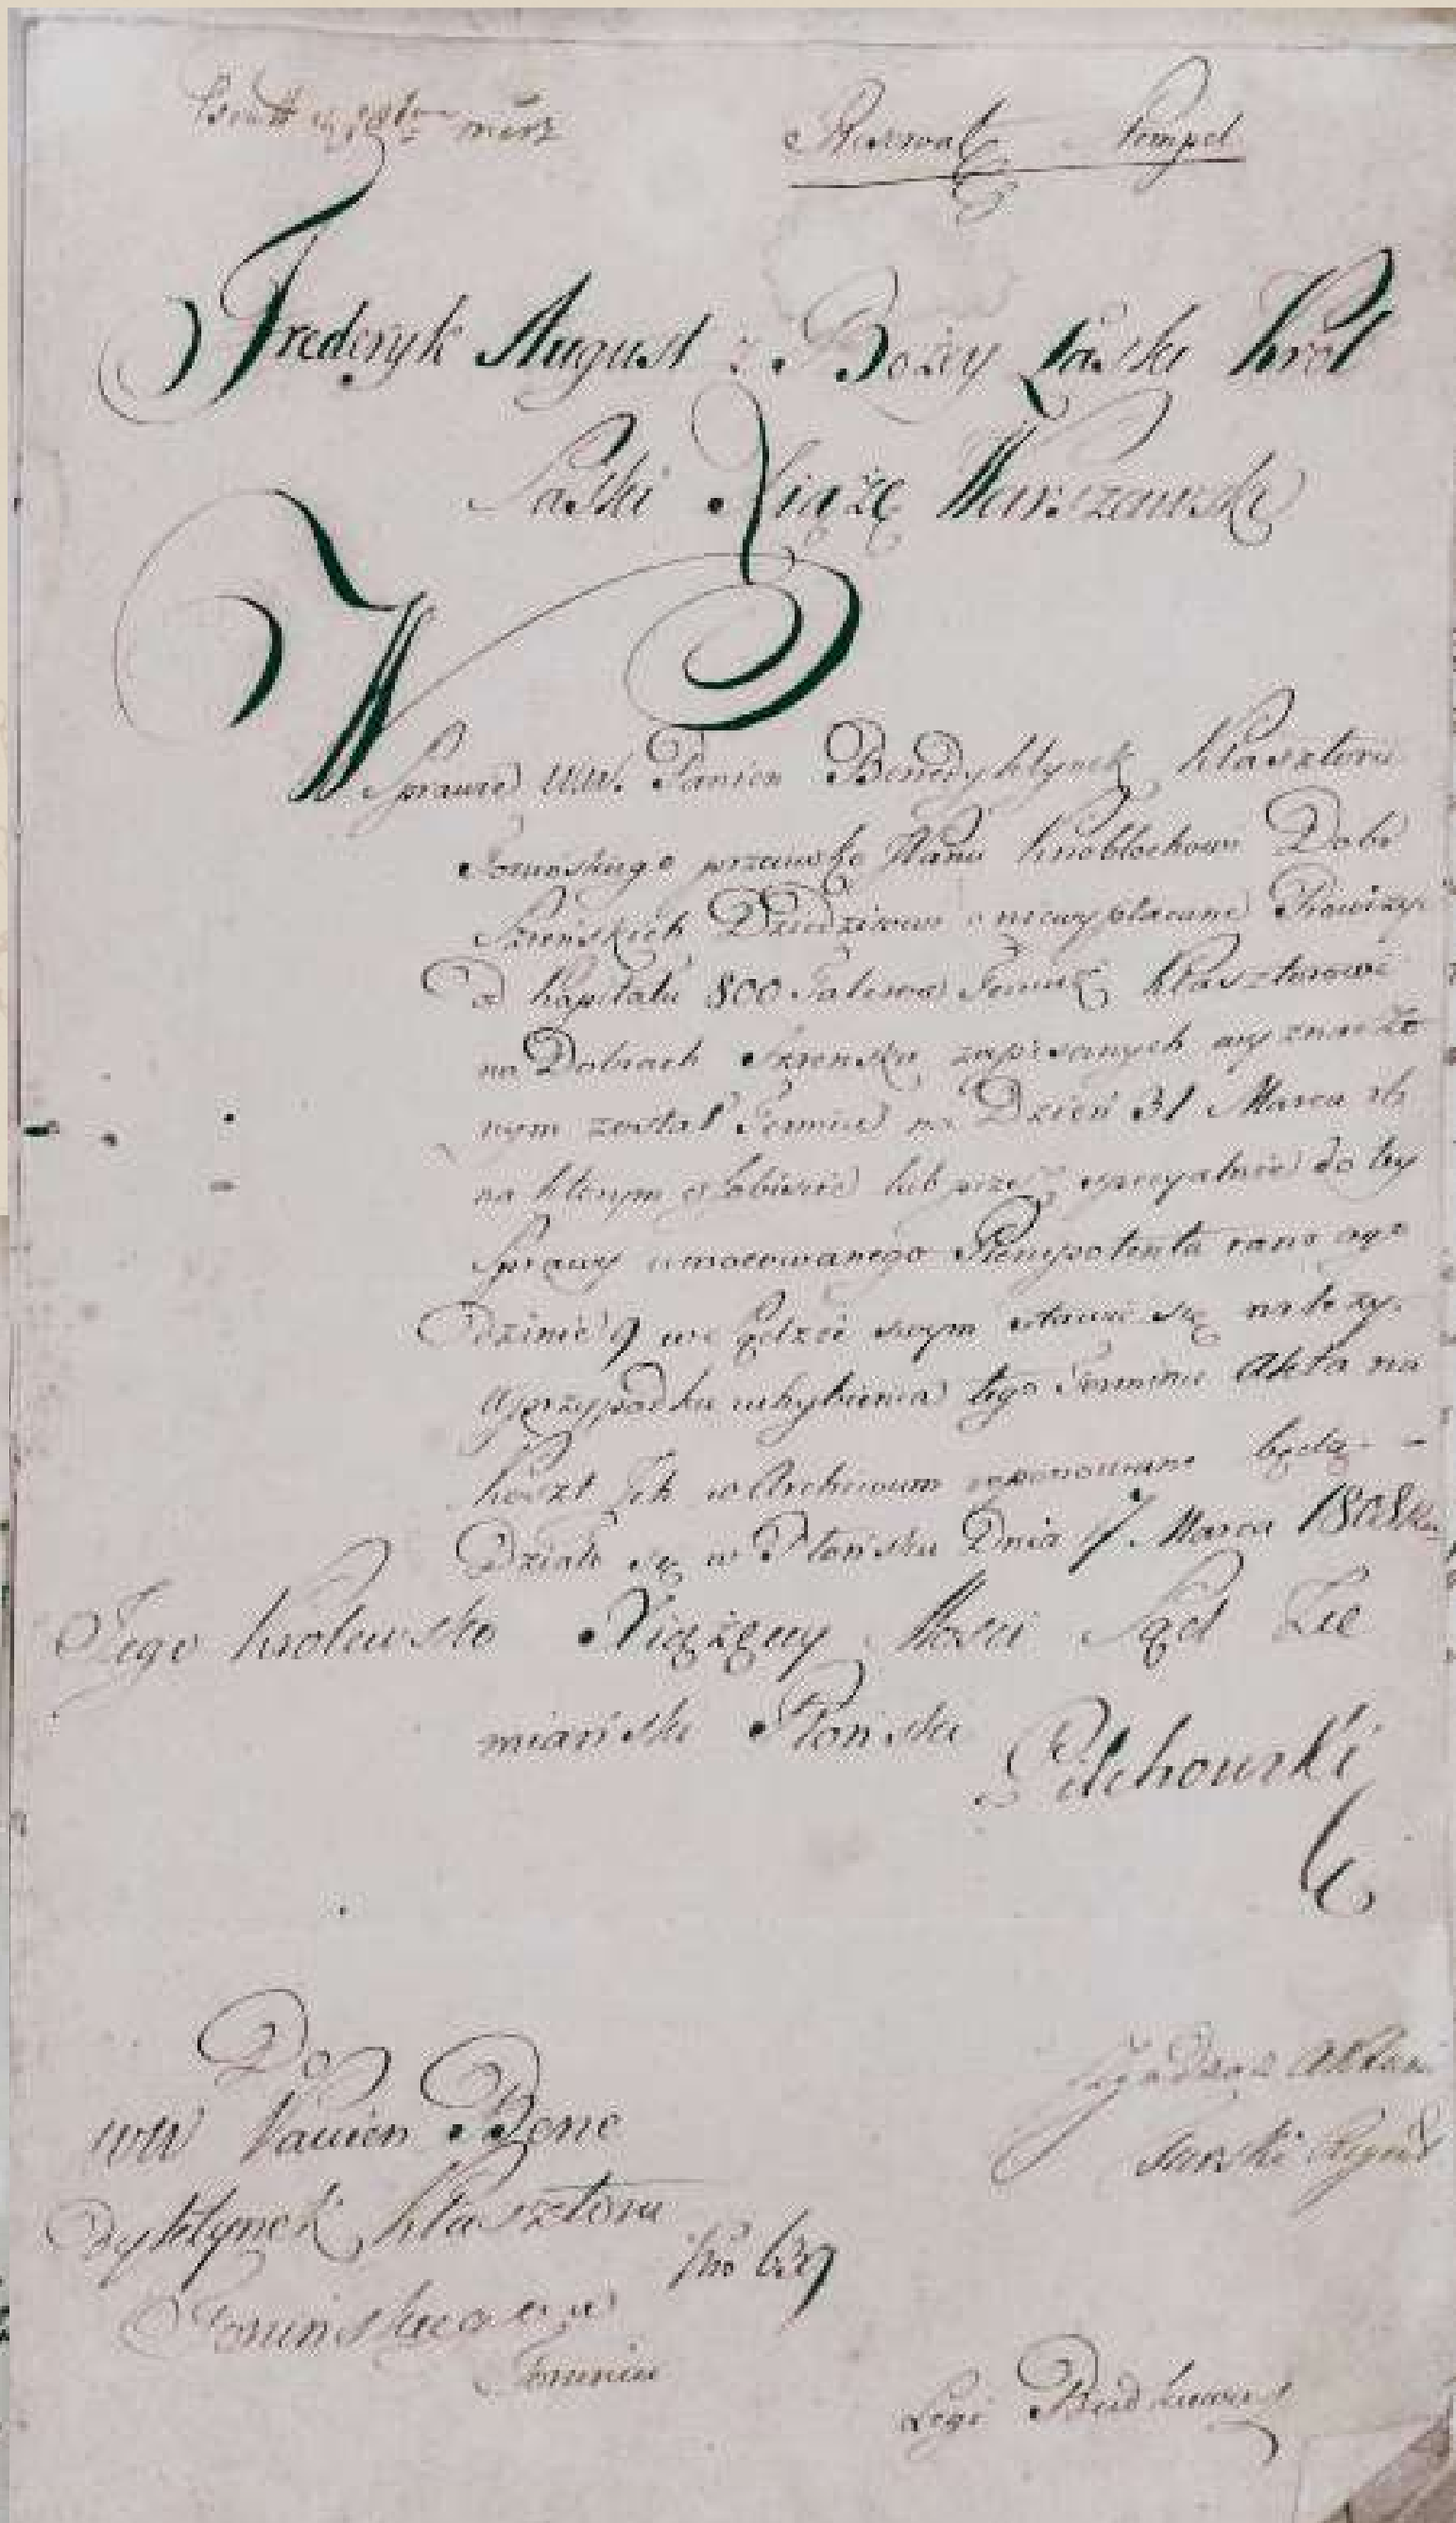 Frederyk August z Bożey Łaski Król
Saski Xiąże Warszawski
W Sprawie WW. Panien Benedyktynek Klasztoru
Toruńskiego przeciwko Panu Knobloch Dobr
Szreńskich Dziedzicowi o niewypłacone Prowizye
od kapitału 800 Talerow Temuż Klasztorowi
na Dobrach Szreńsku zapisanych wyznaczo
nym został Termin na Dzień 31 Marca
na którym osobiście lub przez specyalnie do tey
Sprawy umocowanego Plenipotenta rano ogo
dzinie 9 w Sądzie swym stawić się należy.
W przypadku uchybienia tego Terminu Akta na
koszt Ich w Archiwum reponowane będą -
Działo się w Płońsku Dnia 7 Marca 1808
Jego Królewsko Xiążęcey Mości Sąd Zie
miański Płoński
Pilchowski
Do
WW Panien Bene
dyktynek Klasztoru
Toruńskiego w
Toruniu